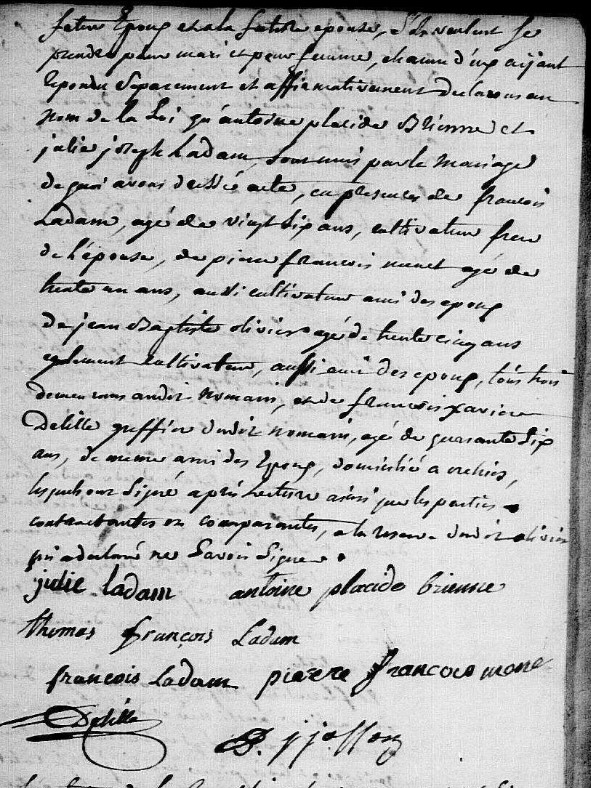 futur Epoux et a la future epouse, s'ils veulent se
prendre pour mari et pour femme, chacun d'eux aijant
repondu separement et affirmativement declarons au
nom de la Loi qu'antoine placide Brienne et
julie joseph Ladam, sont unis par le mariage
de quoi avons dressé acte, en presence de francois
Ladam, agé de vingt six ans, cultivateur frere
de l'épouse, de pierre francois monet agé de
trente un ans, aussi cultivateur ami des epoux
de jean Baptiste olivier agé de trente cinq ans
egalement cultivateur, aussi ami des epoux, tous trois
demeurans audit nomain, et de francois xavier
Delille greffier dudit nomain, agé de quarante six
ans, de meme ami des Epoux, domicilié a orchies,
lesquels ont signé aprés lecture ainsi que les parties
contractantes et comparantes, a la reserve dudit olivier
qui a declaré ne savoir signer.
julie ladam antoine placide brienne
thomas françois Ladam
françois Ladam pierre francois mone
Delille